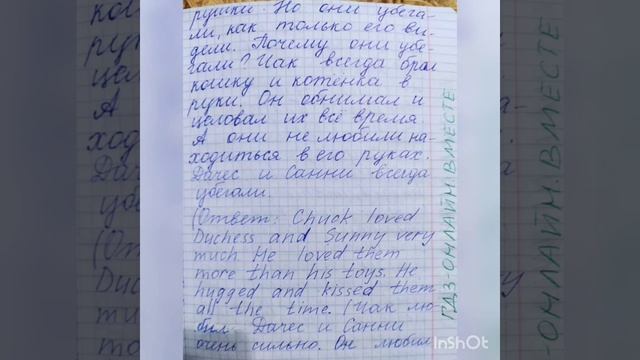 рушки. Но они убега-
ли, как только его ви-
дели. Почему они убе-
гали? Чак всегда брал
кошку и котенка в
руки. Он обнимал и
целовал их всё время
А они не любили на-
ходиться в его руках.
Дачес и Санни всегда
убегали.
(Ответ: Chuck loved
Duchess and Sunny very
much He loved them
more than his toys. He
hugged and kissed them
all the time. (Чак лю-
бил Дачес и Санни
очень сильно. Он любил
ГДЗ ОНЛАЙН. ВМЕСТЕ
InShOt